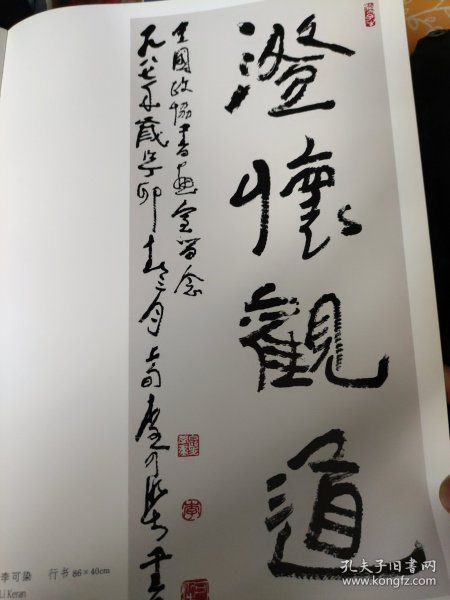 澄懷觀道
全國政協書畫室留念
一九八七年歲丁卯春三月
李可染 行书 86×40cm
Li Keran
孔夫子旧书网